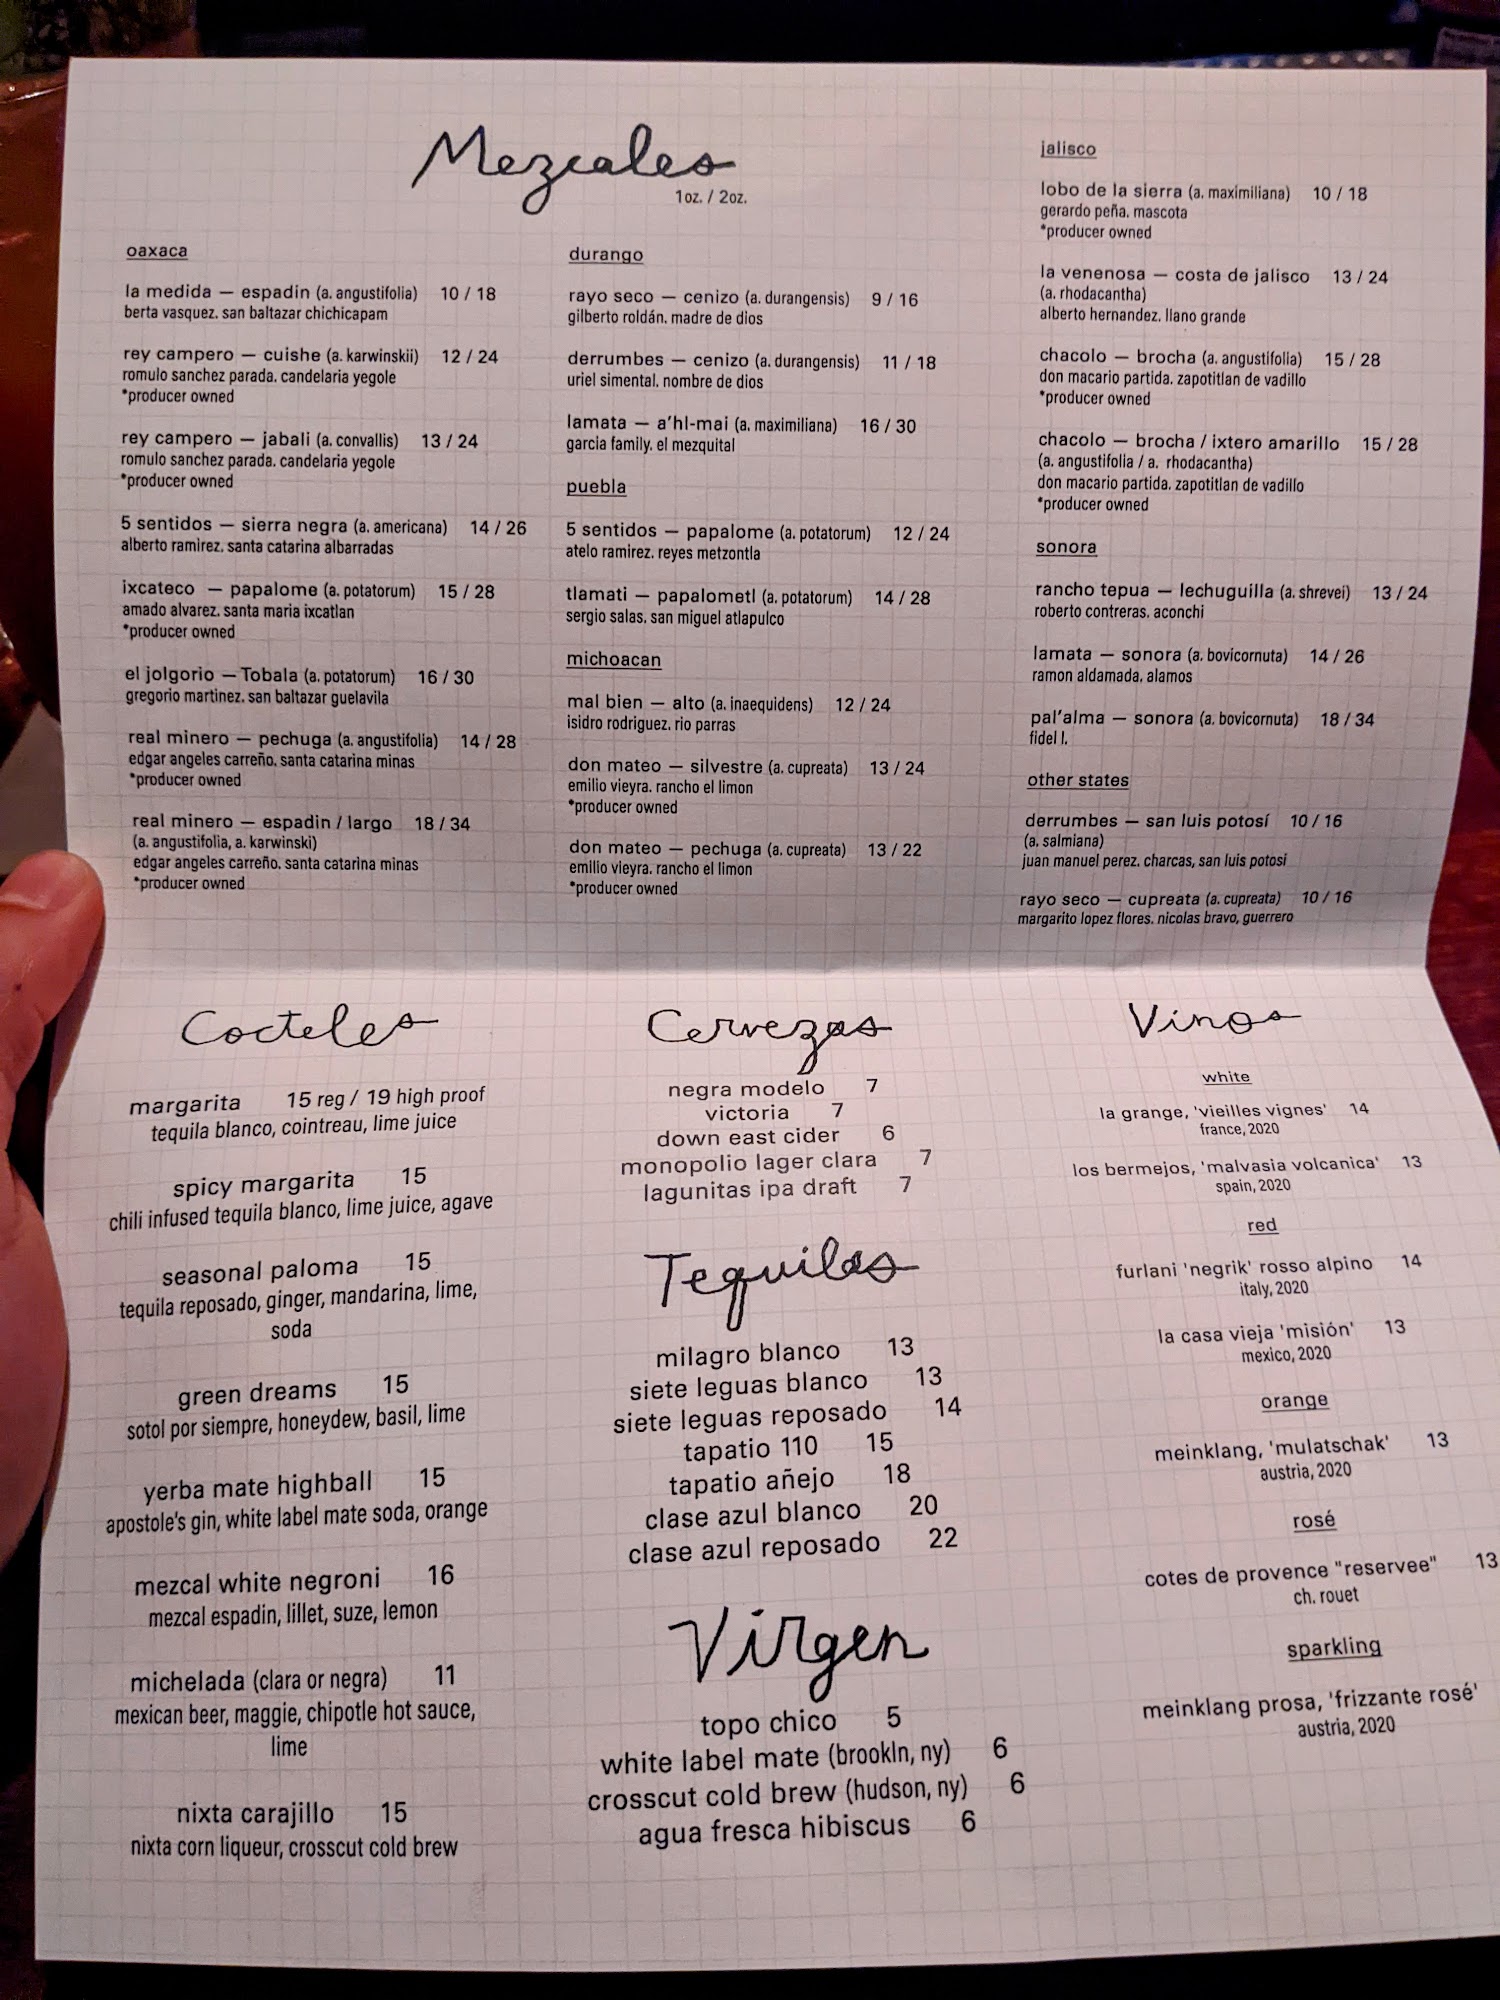 Mezcales
1oz. / 2oz.
oaxaca
la medida — espadin (a. angustifolia) 10 / 18
berta vasquez. san baltazar chichicapam
rey campero — cuishe (a. karwinskii) 12 / 24
romulo sanchez parada. candelaria yegole
*producer owned
rey campero — jabali (a. convallis) 13 / 24
romulo sanchez parada. candelaria yegole
*producer owned
5 sentidos — sierra negra (a. americana) 14 / 26
alberto ramirez. santa catarina albarradas
ixcateco — papalome (a. potatorum) 15 / 28
amado alvarez. santa maria ixcatlan
*producer owned
el jolgorio — Tobala (a. potatorum) 16 / 30
gregorio martinez. san baltazar guelavila
real minero — pechuga (a. angustifolia) 14 / 28
edgar angeles carreño. santa catarina minas
*producer owned
real minero — espadin / largo 18 / 34
(a. angustifolia, a. karwinski)
edgar angeles carreño. santa catarina minas
*producer owned
durango
rayo seco — cenizo (a. durangensis) 9 / 16
gilberto roldán. madre de dios
derrumbes — cenizo (a. durangensis) 11 / 18
uriel simental. nombre de dios
lamata — a'hl-mai (a. maximiliana) 16 / 30
garcia family. el mezquital
puebla
5 sentidos — papalome (a. potatorum) 12 / 24
atelo ramirez. reyes metzontla
tlamati — papalometl (a. potatorum) 14 / 28
sergio salas. san miguel atlapulco
michoacan
mal bien — alto (a. inaequidens) 12 / 24
isidro rodriguez. rio parras
don mateo — silvestre (a. cupreata) 13 / 24
emilio vieyra. rancho el limon
*producer owned
don mateo — pechuga (a. cupreata) 13 / 22
emilio vieyra. rancho el limon
*producer owned
jalisco
lobo de la sierra (a. maximiliana) 10 / 18
gerardo peña. mascota
*producer owned
la venenosa — costa de jalisco 13 / 24
(a. rhodacantha)
alberto hernandez. llano grande
chacolo — brocha (a. angustifolia) 15 / 28
don macario partida. zapotitlan de vadillo
*producer owned
chacolo — brocha / ixtero amarillo 15 / 28
(a. angustifolia / a. rhodacantha)
don macario partida. zapotitlan de vadillo
*producer owned
sonora
rancho tepua — lechuguilla (a. shrevei) 13 / 24
roberto contreras. aconchi
lamata — sonora (a. bovicornuta) 14 / 26
ramon aldamada. alamos
pal'alma — sonora (a. bovicornuta) 18 / 34
fidel l.
other states
derrumbes — san luis potosí 10 / 16
(a. salmiana)
juan manuel perez. charcas, san luis potosi
rayo seco — cupreata (a. cupreata) 10 / 16
margarito lopez flores. nicolas bravo, guerrero
Cocteles
margarita 15 reg / 19 high proof
tequila blanco, cointreau, lime juice
spicy margarita 15
chili infused tequila blanco, lime juice, agave
seasonal paloma 15
tequila reposado, ginger, mandarina, lime,
soda
green dreams 15
sotol por siempre, honeydew, basil, lime
yerba mate highball 15
apostole's gin, white label mate soda, orange
mezcal white negroni 16
mezcal espadin, lillet, suze, lemon
michelada (clara or negra) 11
mexican beer, maggie, chipotle hot sauce,
lime
nixta carajillo 15
nixta corn liqueur, crosscut cold brew
Cervezas
negra modelo 7
victoria 7
down east cider 6
monopolio lager clara 7
lagunitas ipa draft 7
Tequilas
milagro blanco 13
siete leguas blanco 13
siete leguas reposado 14
tapatio 110 15
tapatio añejo 18
clase azul blanco 20
clase azul reposado 22
Virgen
topo chico 5
white label mate (brookln, ny) 6
crosscut cold brew (hudson, ny) 6
agua fresca hibiscus 6
Vinos
white
la grange, 'vieilles vignes' 14
france, 2020
los bermejos, 'malvasia volcanica' 13
spain, 2020
red
furlani 'negrik' rosso alpino 14
italy, 2020
la casa vieja 'misión' 13
mexico, 2020
orange
meinklang, 'mulatschak' 13
austria, 2020
rosé
cotes de provence "reservee" 13
ch. rouet
sparkling
meinklang prosa, 'frizzante rosé'
austria, 2020